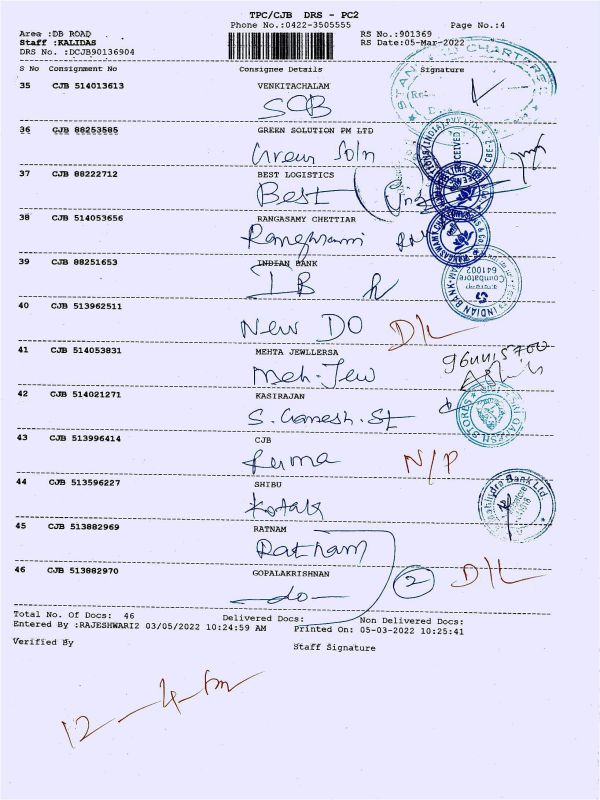 TPC/CJB DRS - PC2
Phone No.:0422-3505555 Page No.:4
Area :DB ROAD RS No.:901369
Staff :KALIDAS RS Date:05-Mar-2022
DRS No. :DCJB90136904
S No Consignment No Consignee Details Signature
35 CJB 514013613 VENKITACHALAM
SOB
36 CJB 88253585 GREEN SOLUTION PM LTD
Green Soln
37 CJB 88222712 BEST LOGISTICS
Best
38 CJB 514053656 RANGASAMY CHETTIAR
39 CJB 88251653 INDIAN BANK
IB
40 CJB 513962511
New DO D/L
41 CJB 514053831 MEHTA JEWLLERSA
Meh. Jew
42 CJB 514021271 KASIRAJAN
S. Ganesh. St
43 CJB 513996414 CJB
Puma N/P
44 CJB 513596227 SHIBU
Kotak
45 CJB 513882969 RATNAM
Ratnam
46 CJB 513882970 GOPALAKRISHNAN
-do- 2 D/L
Total No. Of Docs: 46 Delivered Docs: Non Delivered Docs:
Entered By :RAJESHWARI2 03/05/2022 10:24:59 AM Printed On: 05-03-2022 10:25:41
Verified By Staff Signature